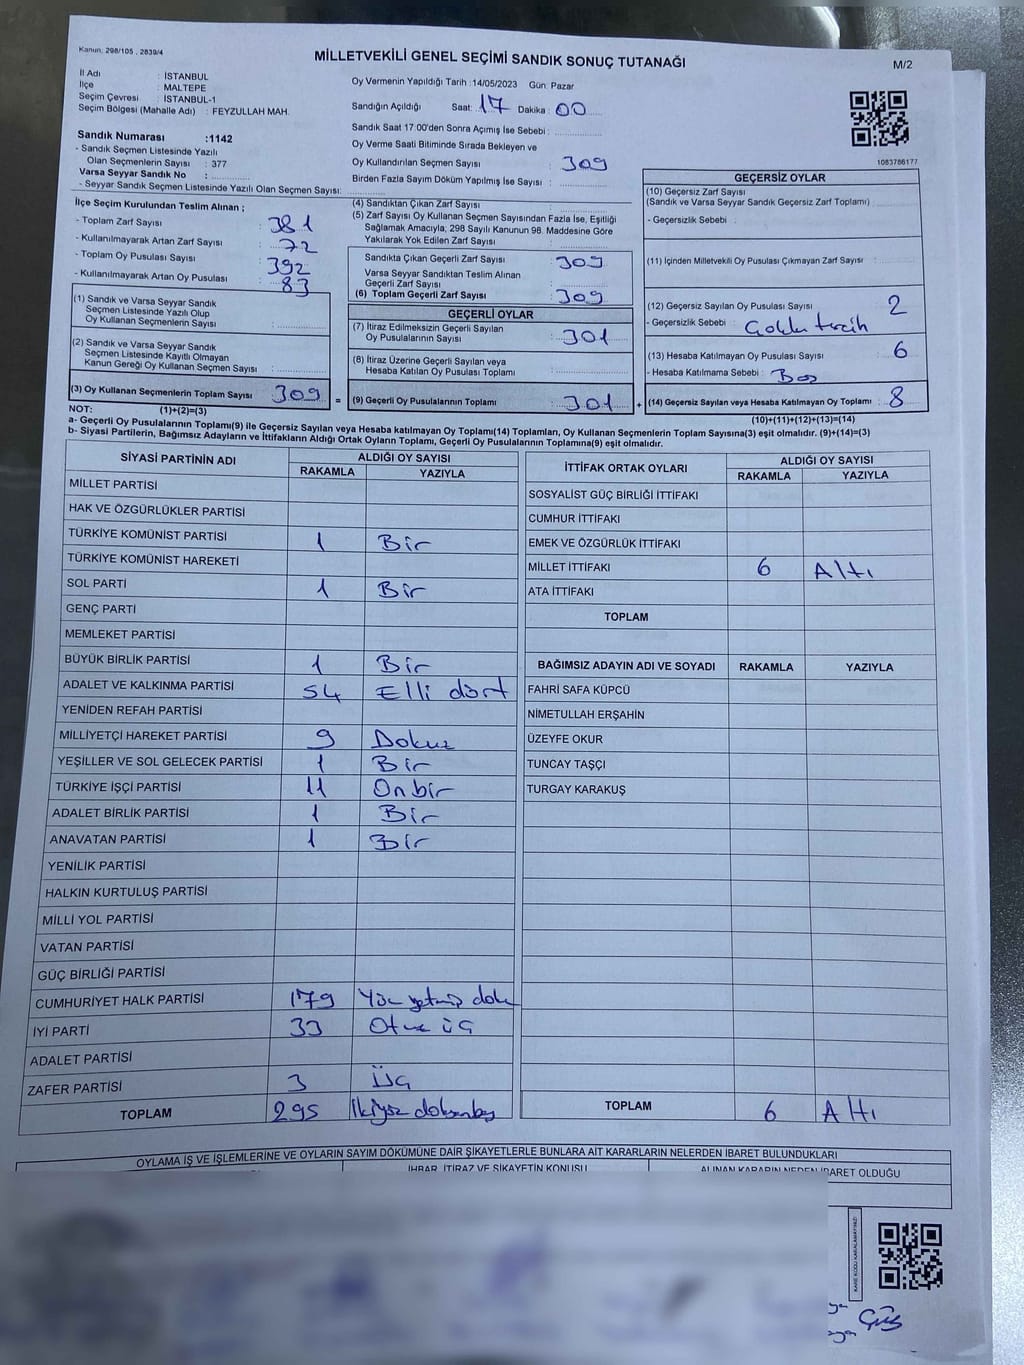 Kanun: 298/105 , 2839/4
MİLLETVEKİLİ GENEL SEÇİMİ SANDIK SONUÇ TUTANAĞI
M/2
İl Adı : İSTANBUL
İlçe : MALTEPE
Seçim Çevresi : İSTANBUL-1
Seçim Bölgesi (Mahalle Adı) : FEYZULLAH MAH.
Oy Vermenin Yapıldığı Tarih :14/05/2023 Gün: Pazar
Sandığın Açıldığı Saat: 17 Dakika: 00
Sandık Saat 17:00'den Sonra Açımış İse Sebebi :
Oy Verme Saati Bitiminde Sırada Bekleyen ve
Oy Kullandırılan Seçmen Sayısı : 309
Birden Fazla Sayım Döküm Yapılmış İse Sayısı :
Sandık Numarası :1142
- Sandık Seçmen Listesinde Yazılı
Olan Seçmenlerin Sayısı : 377
Varsa Seyyar Sandık No :
- Seyyar Sandık Seçmen Listesinde Yazılı Olan Seçmen Sayısı:
1083786177
İlçe Seçim Kurulundan Teslim Alınan ;
- Toplam Zarf Sayısı : 381
- Kullanılmayarak Artan Zarf Sayısı : 72
- Toplam Oy Pusulası Sayısı : 392
- Kullanılmayarak Artan Oy Pusulası : 83
(1) Sandık ve Varsa Seyyar Sandık
Seçmen Listesinde Yazılı Olup
Oy Kullanan Seçmenlerin Sayısı :
(2) Sandık ve Varsa Seyyar Sandık
Seçmen Listesinde Kayıtlı Olmayan
Kanun Gereği Oy Kullanan Seçmen Sayısı :
(3) Oy Kullanan Seçmenlerin Toplam Sayısı : 309 =
(4) Sandıktan Çıkan Zarf Sayısı :
(5) Zarf Sayısı Oy Kullanan Seçmen Sayısından Fazla İse, Eşitliği
Sağlamak Amacıyla, 298 Sayılı Kanunun 98. Maddesine Göre
Yakılarak Yok Edilen Zarf Sayısı :
Sandıkta Çıkan Geçerli Zarf Sayısı : 309
Varsa Seyyar Sandıktan Teslim Alınan
Geçerli Zarf Sayısı :
(6) Toplam Geçerli Zarf Sayısı : 309
GEÇERLİ OYLAR
(7) İtiraz Edilmeksizin Geçerli Sayılan
Oy Pusulalarının Sayısı : 301
(8) İtiraz Üzerine Geçerli Sayılan veya
Hesaba Katılan Oy Pusulası Toplamı :
(9) Geçerli Oy Pusulalarının Toplamı : 301 +
GEÇERSİZ OYLAR
(10) Geçersiz Zarf Sayısı
(Sandık ve Varsa Seyyar Sandık Geçersiz Zarf Toplamı) :
- Geçersizlik Sebebi :
(11) İçinden Milletvekili Oy Pusulası Çıkmayan Zarf Sayısı :
(12) Geçersiz Sayılan Oy Pusulası Sayısı : 2
- Geçersizlik Sebebi : Çoklu tercih
(13) Hesaba Katılmayan Oy Pusulası Sayısı : 6
- Hesaba Katılmama Sebebi : Boş
(14) Geçersiz Sayılan veya Hesaba Katılmayan Oy Toplamı : 8
NOT: (1)+(2)=(3)
(10)+(11)+(12)+(13)=(14)
a- Geçerli Oy Pusulalarının Toplamı(9) ile Geçersiz Sayılan veya Hesaba katılmayan Oy Toplamı(14) Toplamları, Oy Kullanan Seçmenlerin Toplam Sayısına(3) eşit olmalıdır. (9)+(14)=(3)
b- Siyasi Partilerin, Bağımsız Adayların ve İttifakların Aldığı Ortak Oyların Toplamı, Geçerli Oy Pusulalarının Toplamına(9) eşit olmalıdır.
SİYASİ PARTİNİN ADI ALDIĞI OY SAYISI
RAKAMLA YAZIYLA
MİLLET PARTİSİ
HAK VE ÖZGÜRLÜKLER PARTİSİ
TÜRKİYE KOMÜNİST PARTİSİ 1 Bir
TÜRKİYE KOMÜNİST HAREKETİ
SOL PARTİ 1 Bir
GENÇ PARTİ
MEMLEKET PARTİSİ
BÜYÜK BİRLİK PARTİSİ 1 Bir
ADALET VE KALKINMA PARTİSİ 54 Elli dört
YENİDEN REFAH PARTİSİ
MİLLİYETÇİ HAREKET PARTİSİ 9 Dokuz
YEŞİLLER VE SOL GELECEK PARTİSİ 1 Bir
TÜRKİYE İŞÇİ PARTİSİ 11 Onbir
ADALET BİRLİK PARTİSİ 1 Bir
ANAVATAN PARTİSİ 1 Bir
YENİLİK PARTİSİ
HALKIN KURTULUŞ PARTİSİ
MİLLİ YOL PARTİSİ
VATAN PARTİSİ
GÜÇ BİRLİĞİ PARTİSİ
CUMHURİYET HALK PARTİSİ 179 Yüz yetmiş
İYİ PARTİ 33 Otuz üç
ADALET PARTİSİ
ZAFER PARTİSİ 3 Üç
TOPLAM 295 İkiyüz doksanbeş
İTTİFAK ORTAK OYLARI ALDIĞI OY SAYISI
RAKAMLA YAZIYLA
SOSYALİST GÜÇ BİRLİĞİ İTTİFAKI
CUMHUR İTTİFAKI
EMEK VE ÖZGÜRLÜK İTTİFAKI
MİLLET İTTİFAKI 6 Altı
ATA İTTİFAKI
TOPLAM
BAĞIMSIZ ADAYIN ADI VE SOYADI RAKAMLA YAZIYLA
FAHRİ SAFA KÜPCÜ
NİMETULLAH ERŞAHİN
ÜZEYFE OKUR
TUNCAY TAŞÇI
TURGAY KARAKUŞ
TOPLAM 6 Altı
OYLAMA İŞ VE İŞLEMLERİNE VE OYLARIN SAYIM DÖKÜMÜNE DAİR ŞİKAYETLERLE BUNLARA AİT KARARLARIN NELERDEN İBARET BULUNDUKLARI
İHBAR, İTİRAZ VE ŞİKAYETİN KONUSU ALINAN KARARIN NEDEN İBARET OLDUĞU
KARE KODU KARALAMAYINIZ!